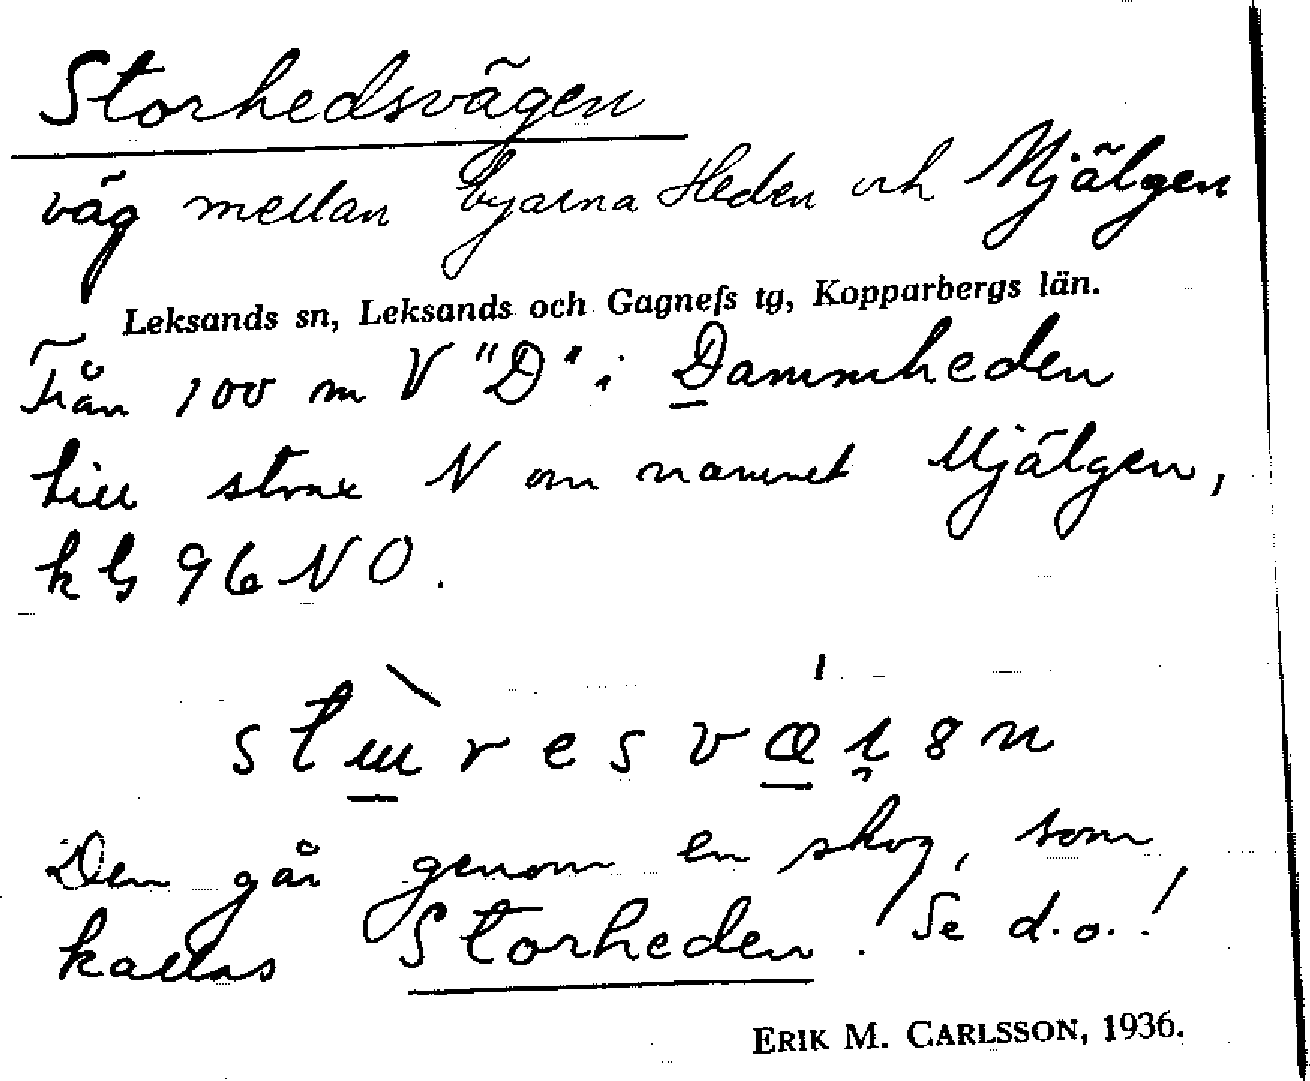 Storhedsvägen
väg mellan byarna Heden och Mjälgen
Leksands sn, Leksands och Gagnefs tg, Kopparbergs län.
Från 100 m V "D" i Dammheden
till strax N om namnet Mjälgen,
kb 96 NO.
Den går genom en skog, som
kallas Storheden. Se d.o.!
ERIK M. CARLSSON, 1936.